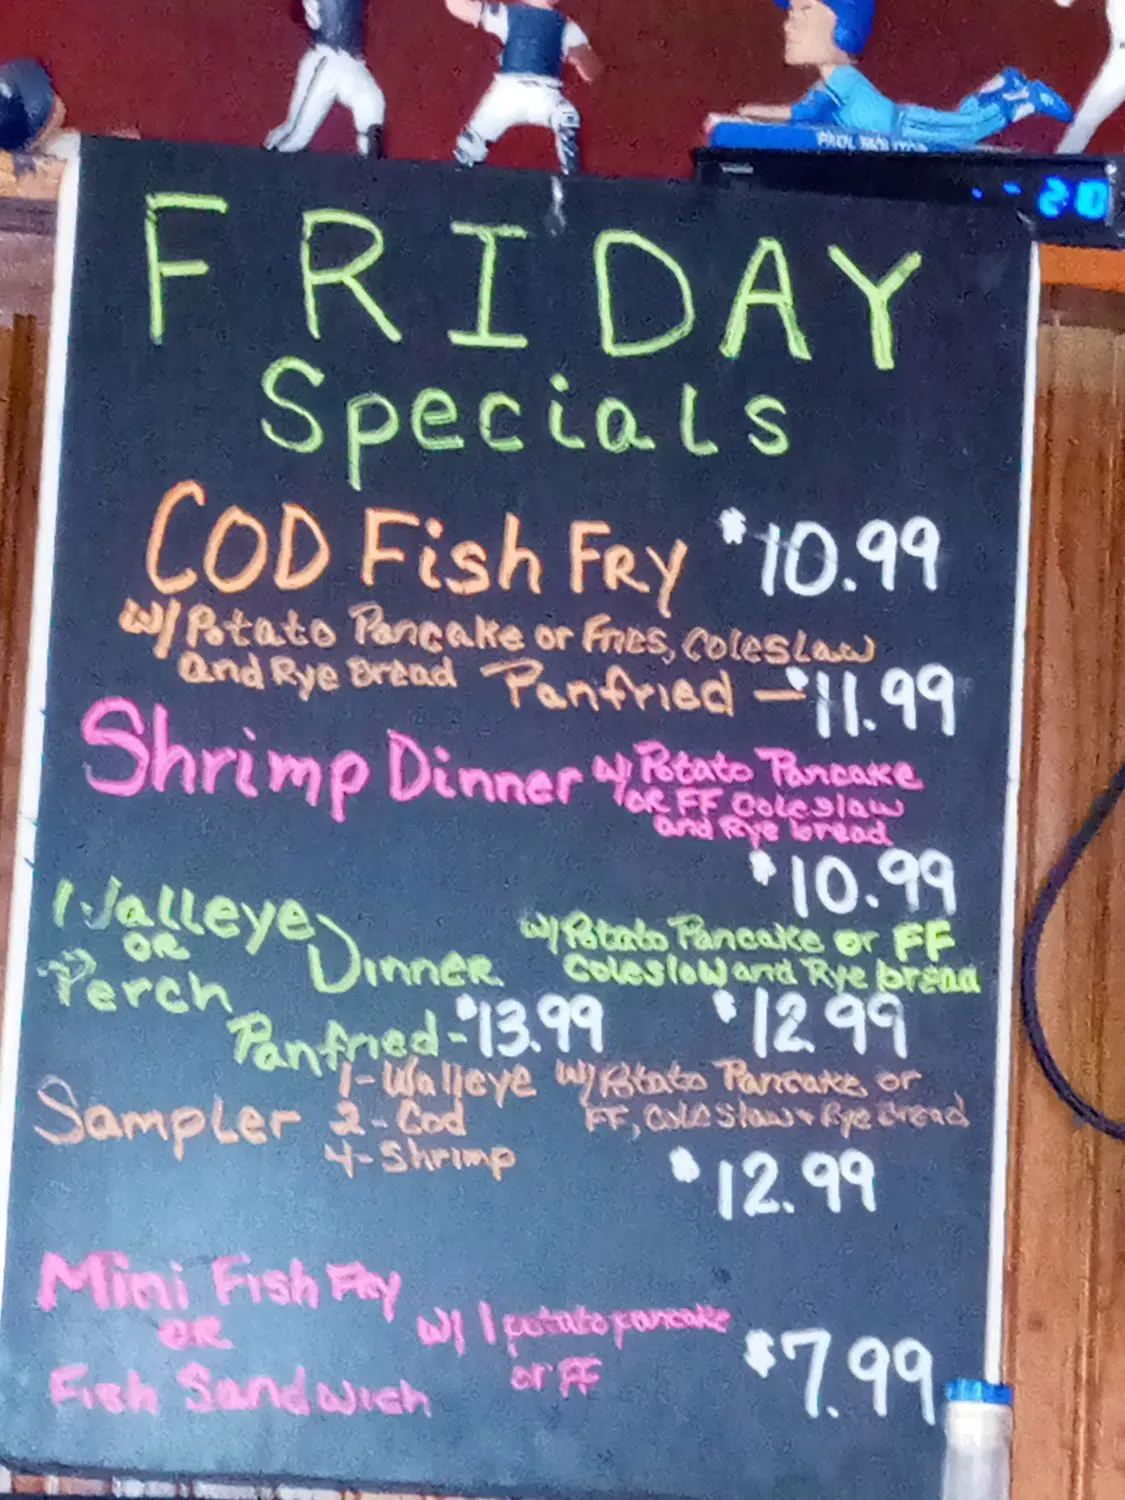 PAUL MOLITOR
20
FRIDAY
Specials
COD Fish FRY $10.99
w/ Potato Pancake or Fries, Coleslaw
and Rye Bread Panfried - $11.99
Shrimp Dinner w/ Potato Pancake
or FF Coleslaw
and Rye bread
$10.99
Walleye
or
Perch
Dinner
w/ Potato Pancake or FF
Coleslaw and Rye bread
Panfried - $13.99 $12.99
Sampler
1 - Walleye
2 - Cod
4 - Shrimp
w/ Potato Pancake or
FF, Coleslaw + Rye Bread
$12.99
Mini Fish Fry
OR
Fish Sandwich
w/ 1 potato pancake
or FF
$7.99